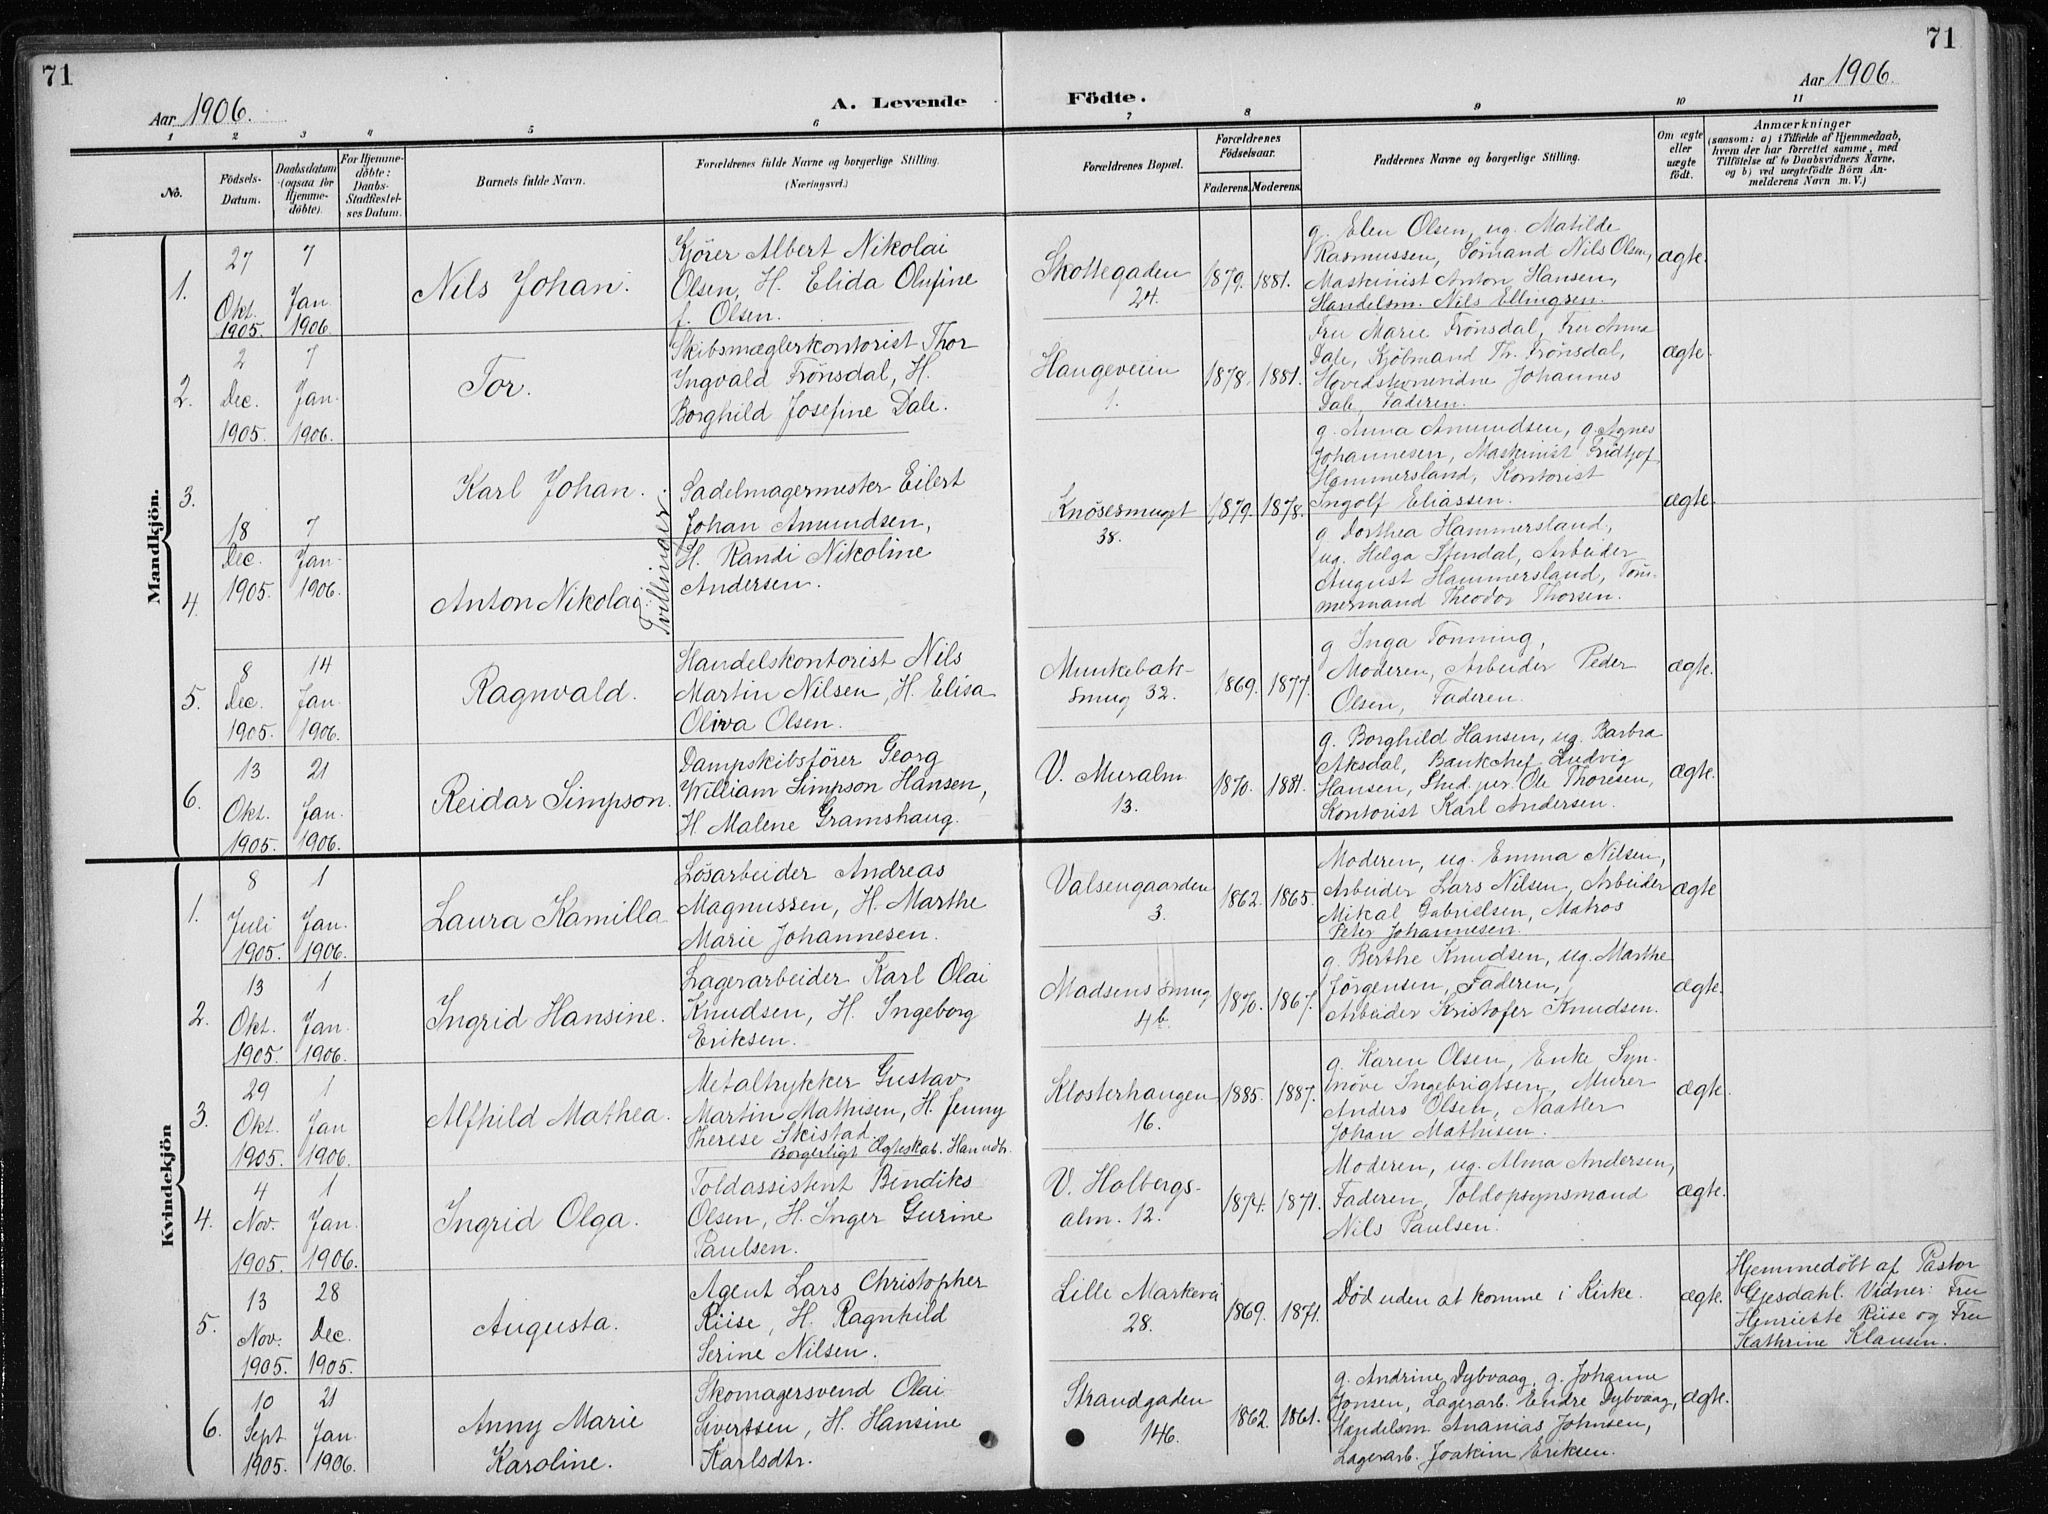 71
71
Aar 1906.
A. Levende
Födte.
Aar 1906.
1
2
3
4
5
6
7
8
9
10
11
No.
Födsels-
Datum.
Daabsdatum
(ogsaa for
Hjemme-
döbte).
For Hjemme-
döbte:
Daabs-
Stadfæstel-
ses Datum.
Barnets fulde Navn.
Forældrenes fulde Navne og borgerlige Stilling.
(Næringsvei.)
Forældrenes Bopæl.
Forældrenes
Födselsaar.
Faderens.
Moderens.
Faddernes Navne og borgerlige Stilling.
Om ægte
eller
uægte
födt.
Anmærkninger
(saasom: a) i Tilfælde af Hjemmedaab,
hvem der har forrettet samme, med
Tilföielse af to Daabsvidners Navne,
og b) ved uægtefödte Börn An-
melderens Navn m. V.)
Mandkjön.
1.
27
Okt.
1905
7
Jan.
1906
Nils Johan.
Kjører Albert Nikolai
Olsen, H. Elida Olufine
f. Olsen.
Skottegaden
24.
1879.
1881.
g. Elen Olsen, ug. Matilde
Rasmussen, Sømand Nils Olsen,
Maskinist Anton Hansen,
Handelsm. Nils Ellingsen.
ægte.
2.
2
Dec.
1905.
7
Jan.
1906.
Tor.
Skibsmæglerkontorist Thor
Ingvald Frønsdal, H.
Borghild Josefine Dale.
Haugeveien
1.
1878.
1881.
Fru Marie Frønsdal, Fru Anna
Dale, Kjøbmand Th. Frønsdal,
Johannes
Dale, Faderen.
ægte.
3.
18
Dec.
1905.
7
Jan.
1906.
Karl Johan.
Tvillinger.
Sadelmagermester Eilert
Johan Amundsen,
H. Randi Nikoline
Andersen.
Knøsesmuget
38.
1879.
1878.
g. Anna Amundsen, g. Agnes
Johannesen, Maskinist Fridtjof
Hammersland, Kontorist
Ingolf Eliassen.
ægte.
4.
Anton Nikolai.
g. Dorthea Hammersland,
ug. Helga Stendal, Arbeider
August Hammersland, Tøm-
mermand Theodor Thorsen.
5.
8
Dec.
1905.
14
Jan.
1906.
Ragnvald.
Handelskontorist Nils
Martin Nilsen, H. Elisa
Oliva Olsen.
Munkebæk-
smug 32.
1869.
1877.
g. Inga Tonning,
Moderen, Arbeider Peder
Olsen, Faderen.
ægte.
6.
13
Okt.
1905.
21
Jan.
1906.
Reidar Simpson.
Dampskibsfører Georg
William Simpson Hansen,
H. Malene Gramshaug.
V. Muralm.
13.
1870.
1881.
g. Borghild Hansen, ug. Barbra
Aksdal, Bankchef Ludvig
Hansen, Stud. jur. Ole Thoresen,
Kontorist Karl Andersen.
ægte.
Kvindekjön
1.
8
Juli
1905.
1
Jan.
1906.
Laura Kamilla
Løsarbeider Andreas
Magnussen, H. Marthe
Marie Johannesen.
Valsengaarden
3.
1862.
1865.
Moderen, ug. Emma Nilsen,
Arbeider Lars Nilsen, Arbeider
Mikal Gabrielsen, Matros
Peter Johannesen.
ægte
2.
13
Okt.
1905.
1
Jan.
1906.
Ingrid Hansine.
Lagerarbeider Karl Olai
Knudsen, H. Ingeborg
Eriksen.
Madsens smug
4b.
1870.
1867.
g. Berthe Knudsen, ug. Marthe
Jørgensen, Faderen,
Arbeider Kristofer Knudsen.
ægte.
3.
29
Okt.
1905.
1
Jan
1906.
Alfhild Mathea.
Metaltrykker Gustav
Martin Mathisen, H. Jenny
Therese Skistad.
Borgerligt Ægteskab.
Klosterhaugen
16.
1885.
1887.
g. Karen Olsen, Enke Syn-
nøve Ingebrigtsen, Murer
Anders Olsen, Naatler
Johan Mathisen.
ægte.
4.
4
Nov.
1905.
1
Jan.
1906.
Ingrid Olga.
Toldassistent Bendiks
Olsen, H. Inger Gurine
Paulsen.
V. Holbergs-
alm. 12.
1874.
1871.
Moderen, ug. Alma Andersen,
Faderen, Toldopsynsmand
Nils Paulsen.
ægte.
5.
13
Nov.
1905.
28
Dec.
1905.
Augusta.
Agent Lars Christopher
Riise, H. Ragnhild
Serine Nilsen.
Lille Markevei
28.
1869.
1871.
Død uden at komme i Kirke.
ægte.
Hjemmedøbt af Pastor
Gjesdahl. Vidner: Fru
Henriette Riise og Fru
Kathrine Klausen.
6.
10
Sept
1905.
21
Jan.
1906.
Anny Marie
Karoline.
Skomagersvend Olai
Sivertsen, H. Hansine
Karlsdtr.
Strandgaden
146.
1862.
1861.
g. Andrine Dybvaag, g. Johanne
Jonsen, Lagerarb. Endre Dybvaag,
Handelsm. Ananias Johnsen,
Lagerarb. Joakim Eriksen.
ægte.